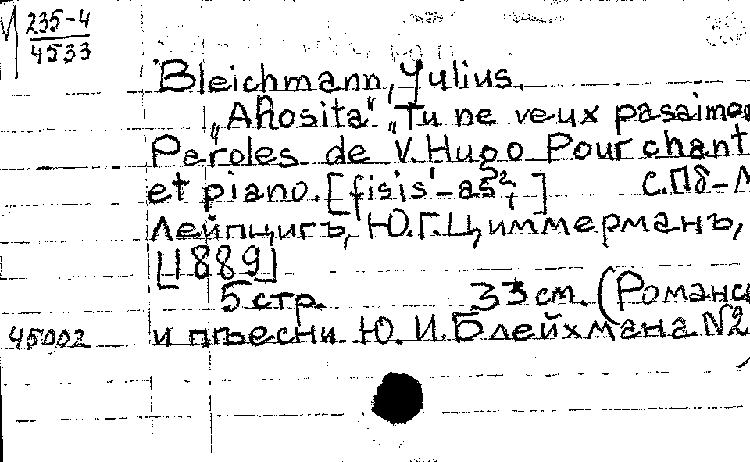 235-4
4533
Bleichmann, Yulius.
„A Rosita". „Tu ne veux pas aimer
Paroles de V. Hugo Pour chant
et piano. [fisis¹-as²;] С.Пб-М
Лейпцигъ, Ю.Г.Циммерманъ,
[1889]
5 стр. 33 cm. (Романсы
45002 и пъесни Ю. И. Блейхмана N2